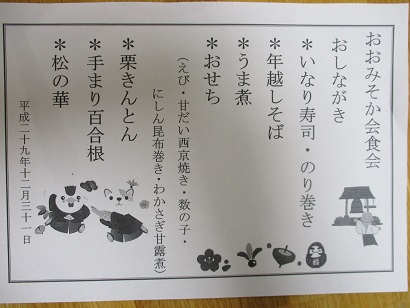 おおみそか会食会
おしながき
＊いなり寿司・のり巻き
＊年越しそば
＊うま煮
＊おせち
（えび・甘だい西京焼き・数の子・
にしん昆布巻き・わかさぎ甘露煮）
＊栗きんとん
＊手まり百合根
＊松の華
平成二十九年十二月三十一日